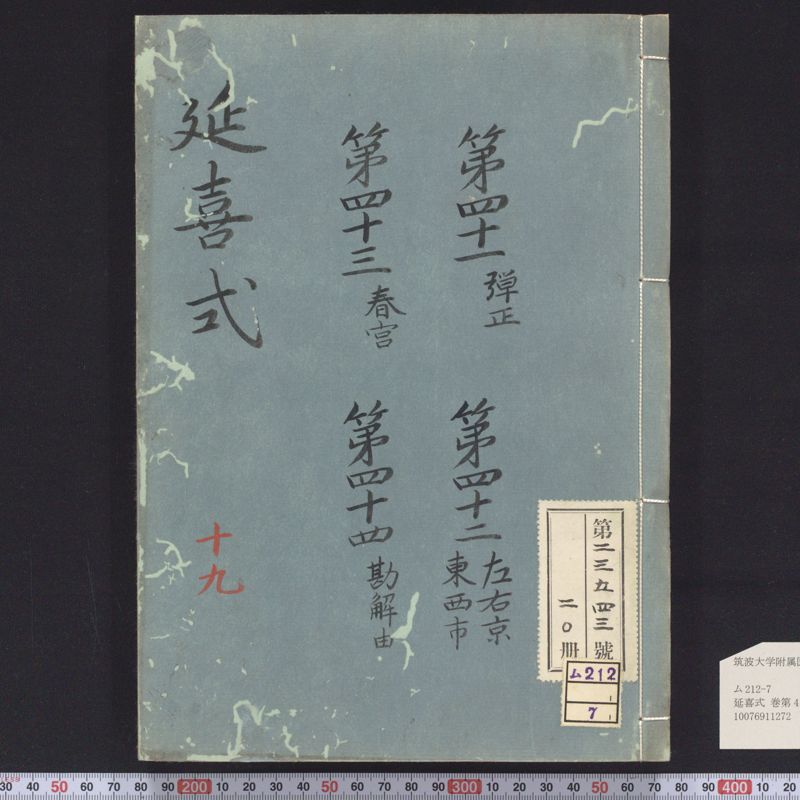 延喜式
第四十一 弾正
第四十二 左右京
東西市
第四十三 春宮
第四十四 勘解由
十九
第二三九四三號
二〇册
ム212
7
筑波大学附属
ム212-7
延喜式 巻第4
10076911272
30 40 50 60 70 80 90 200 10 20 30 40 50 60 70 80 90 300 10 20 30 40 50 60 70 80 90 400 10 20